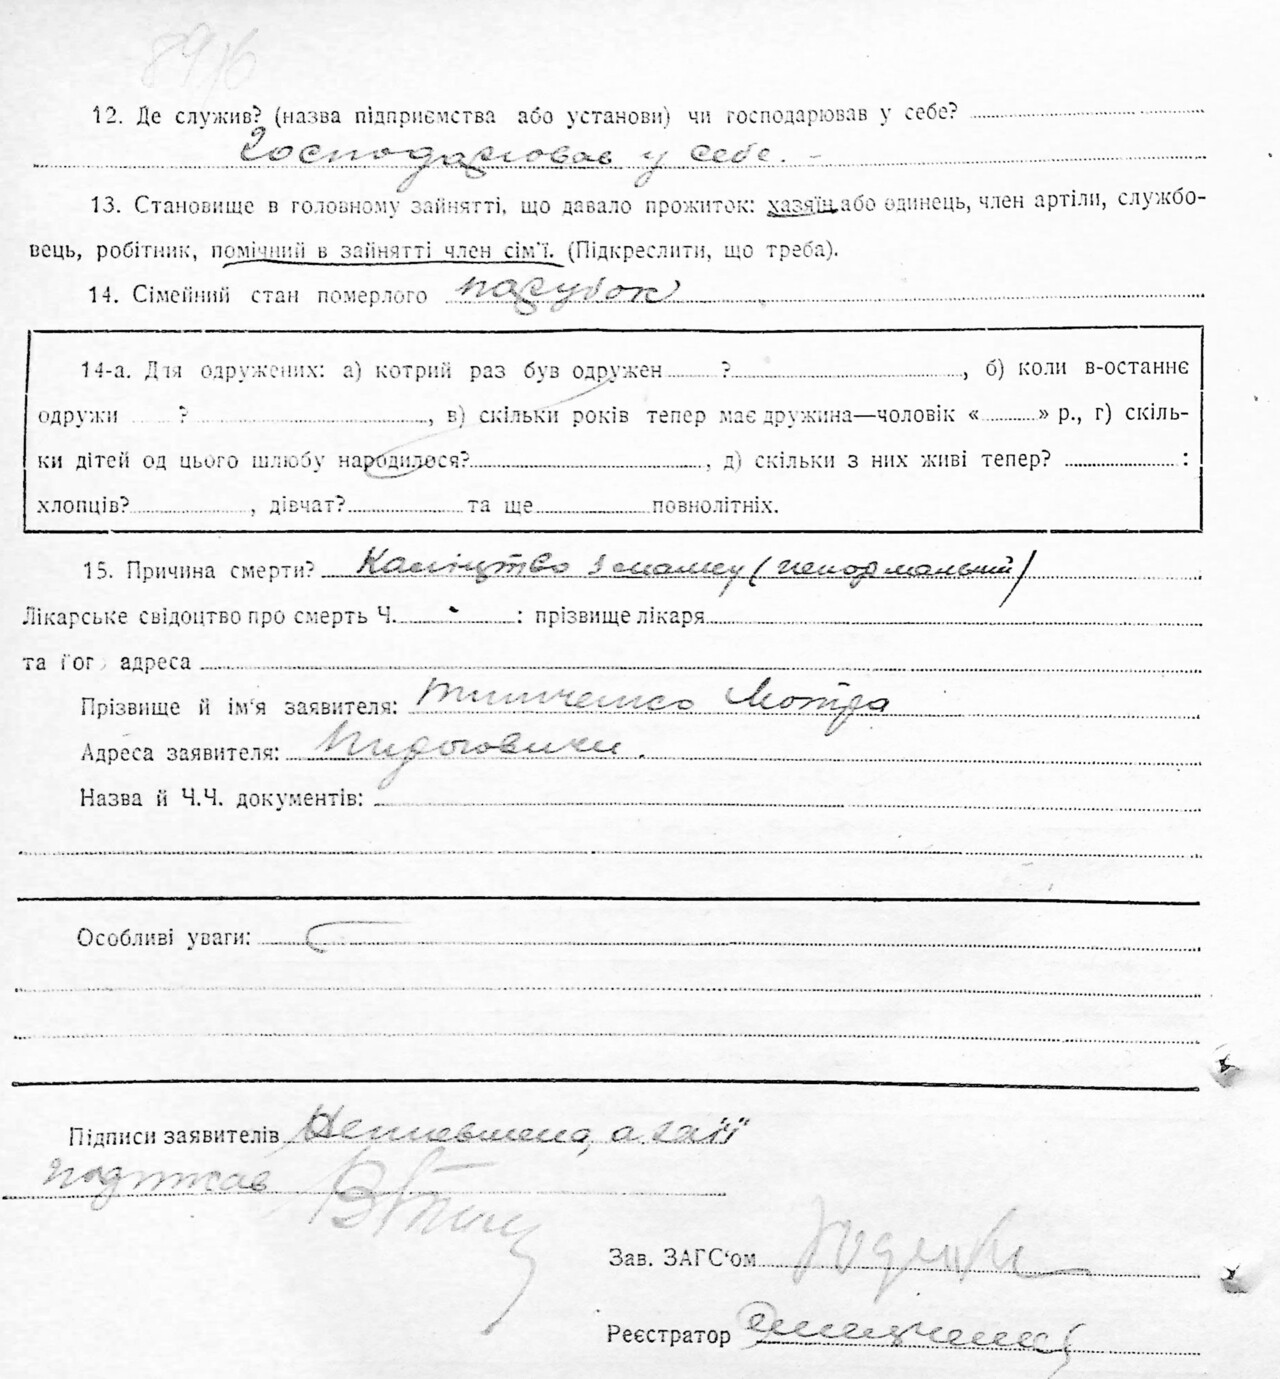 12. Де служив? (назва підприємства або установи) чи господарював у себе?
Господарював у себе. -
13. Становище в головному зайнятті, що давало прожиток: хазяїн або одинець, член артіли, службо-
вець, робітник, помічний в зайнятті член сім'ї. (Підкреслити, що треба).
14. Сімейний стан померлого парубок
14-а. Для одружених: а) котрий раз був одружен ? , б) коли в-останнє
одружи ? , в) скільки років тепер має дружина—чоловік « » р., г) скіль-
ки дітей од цього шлюбу народилося? , д) скільки з них живі тепер? :
хлопців? , дівчат? та ще повнолітніх.
15. Причина смерти? Каліцтво з (ненормальний)
Лікарське свідоцтво про смерть Ч. : прізвище лікаря
та його адреса
Прізвище й ім'я заявителя: Мотря
Адреса заявителя:
Назва й Ч.Ч. документів:
Особливі уваги:
Підписи заявителів Неписьмена, а за її
подписав
Зав. ЗАГС'ом
Реєстратор